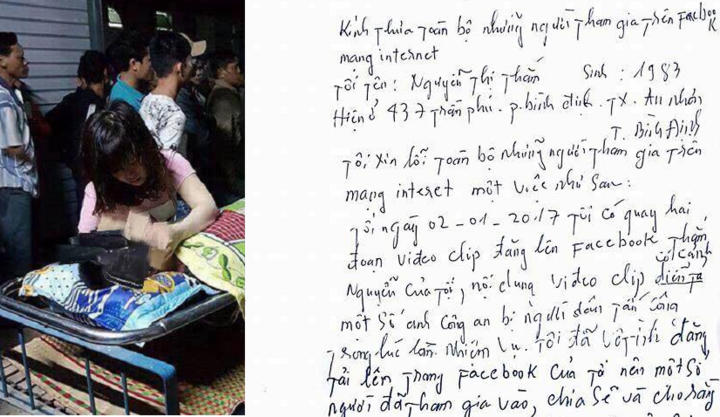 Kính thưa toàn bộ những người tham gia trên Facebook
mang internet
Tôi tên: Nguyễn Thị Thắm Sinh: 1983
Hiện ở 437 Trần phú. p. bình định. TX. An Nhơn
T. Bình Định
Tôi xin lỗi toàn bộ những người tham gia trên
mạng interet một việc như sau:
Tối ngày 02-01-2017 tôi có quay hai
đoạn video clip đăng lên Facebook Thắm
Nguyễn của tôi, nội dung video clip diễn tả có cảnh
một số anh công an bị người dân tấn công
trong lúc làm nhiệm vụ. Tôi đã vô tình đăng
tải lên trang Facebook của tôi nên một số
người đã tham gia vào, chia sẽ và cho rằng